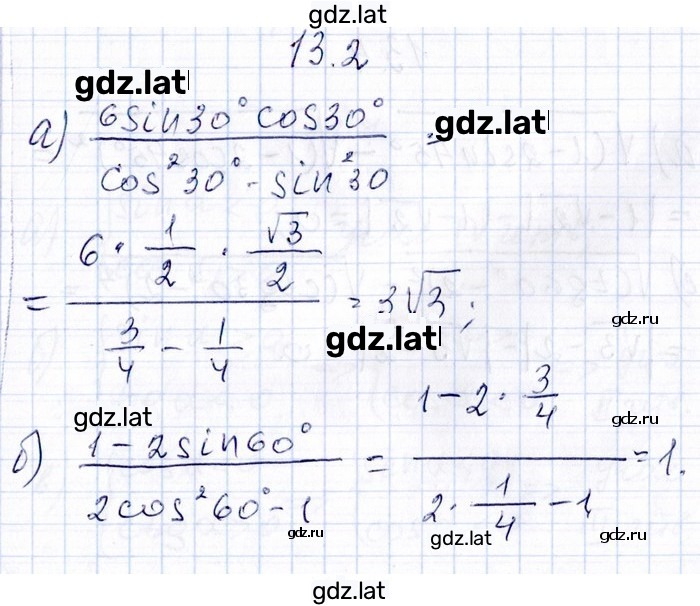 gdz.lat
13.2
gdz.lat
а) 6sin30° cos30° / cos²30° - sin²30 = gdz.lat
= 6 · 1/2 · √3/2 / 3/4 - 1/4 = 3√3;
gdz.ru
gdz.lat
gdz.lat
б) 1-2sin60° / 2cos²60°-1 = 1-2 · 3/4 / 2 · 1/4 - 1 = 1.
gdz.ru
gdz.lat
gdz.ru
gdz.ru
gdz.lat